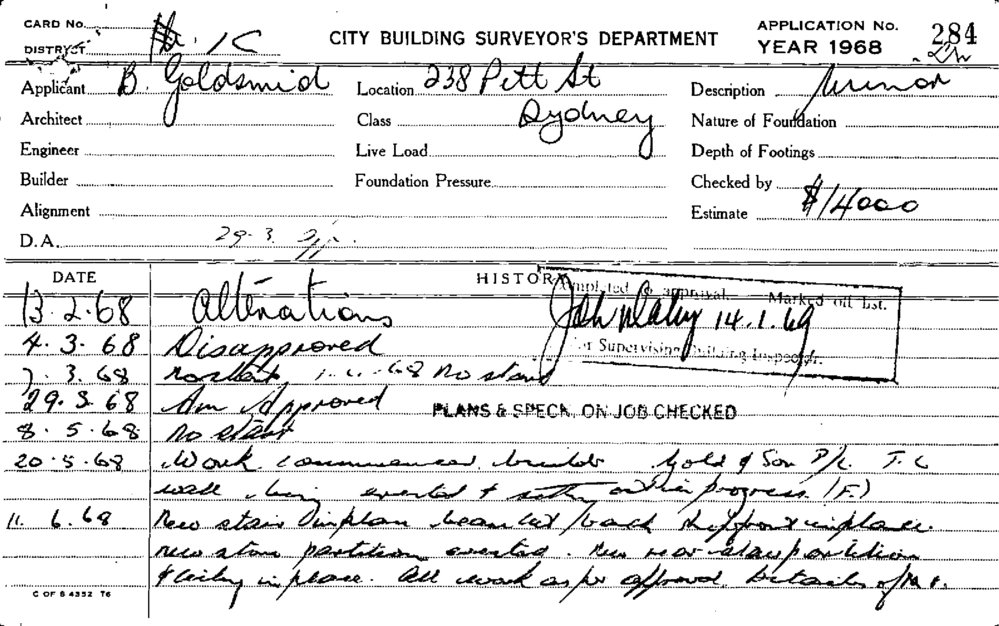 CARD No.
DISTRICT 1C
CITY BUILDING SURVEYOR'S DEPARTMENT
APPLICATION No. 284
YEAR 1968
Applicant B. Goldsmid
Location 238 Pitt St
Description Minor
Architect
Class Sydney
Nature of Foundation
Engineer
Live Load
Depth of Footings
Builder
Foundation Pressure
Checked by
Alignment
Estimate $14000
D.A. 29.3.
DATE HISTORY
Completed to approval. Marked off list.
14.1.69
for Supervising Building Inspector.
13.2.68 Alterations
4.3.68 Disapproved
7.3.68 no start, 68 No start
29.3.68 Am Approved
PLANS & SPECN. ON JOB CHECKED
8.5.68 No start
20.5.68 Work commenced, builder Gold & Son P/L. T.C
wall being erected & in progress. (F.)
11.6.68 New stair in place.
new store partition erected. New rear partition
& ceiling in place. All work as per approval. Details of
C OF S 4352 T6